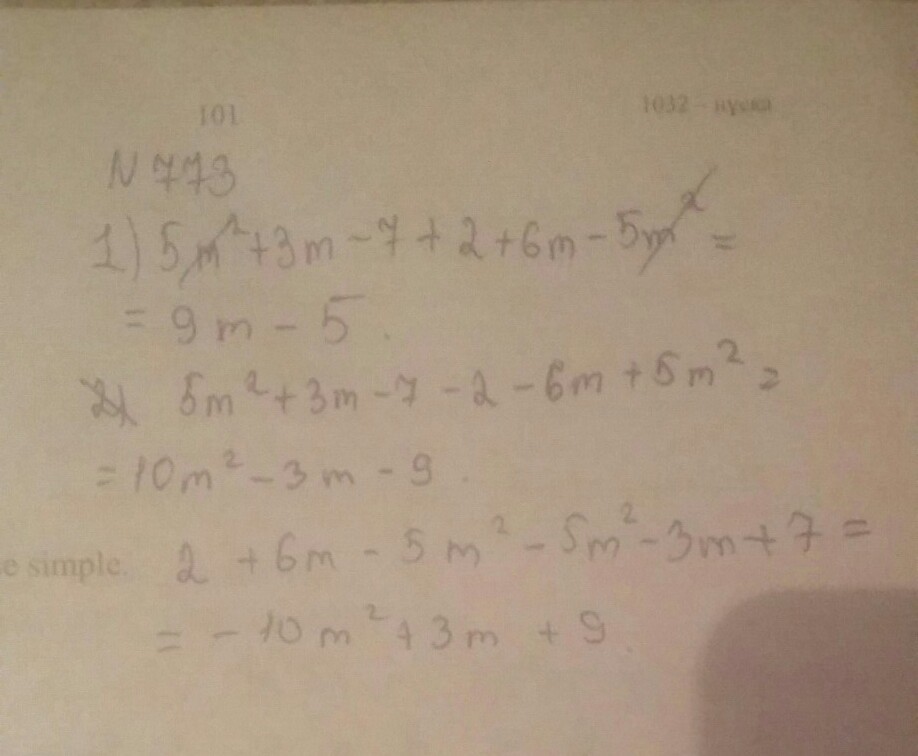 101 1032 - нуска
N 773
1) 5m² + 3m - 7 + 2 + 6m - 5m² =
= 9m - 5.
2) 5m² + 3m - 7 - 2 - 6m + 5m² =
= 10m² - 3m - 9.
e simple. 2 + 6m - 5m² - 5m² - 3m + 7 =
= - 10m² + 3m + 9.